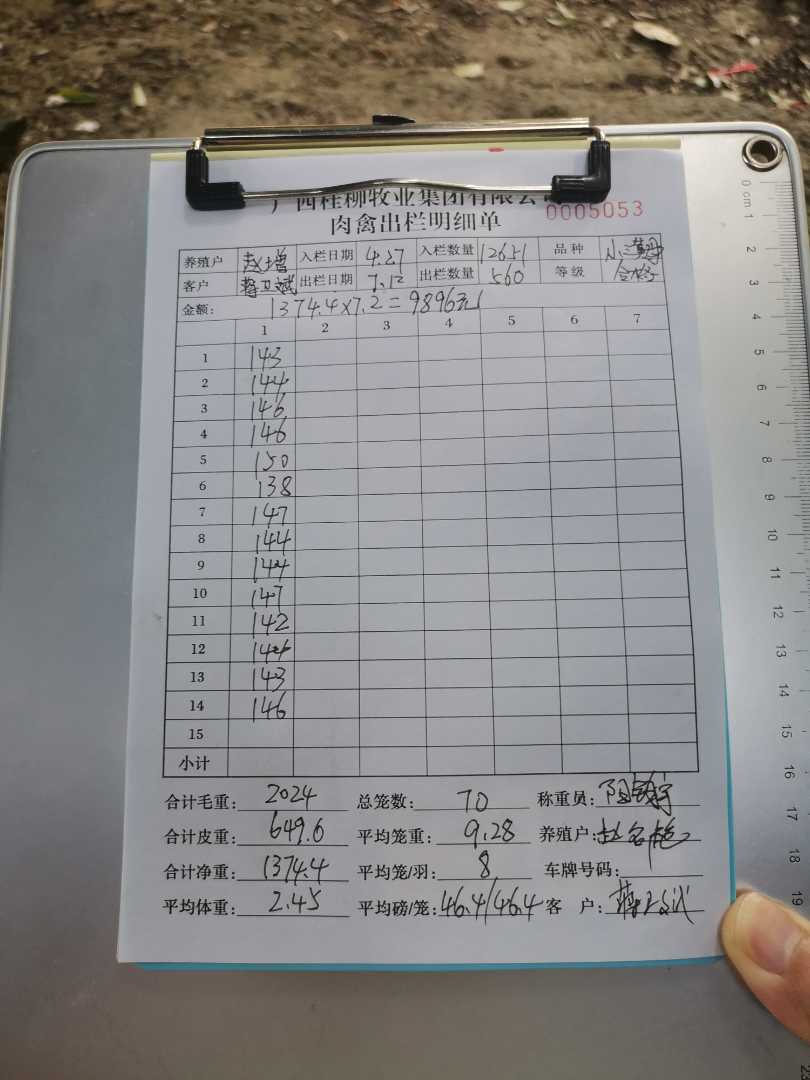 广西桂柳牧业集团有限公司
肉禽出栏明细单
0005053
养殖户 赵增 入栏日期 4.27 入栏数量 12651 品种
客户 出栏日期 7.12 出栏数量 560 等级 合格
金额: 1374.4×7.2=9896元
1 2 3 4 5 6 7
1 143
2 144
3 146
4 146
5 150
6 138
7 147
8 144
9 144
10 147
11 142
12 144
13 143
14 146
15
小计
合计毛重: 2024 总笼数: 70 称重员:
合计皮重: 649.6 平均笼重: 9.28 养殖户:
合计净重: 1374.4 平均笼/羽: 8 车牌号码:
平均体重: 2.45 平均磅/笼: 46.4/46.4 客 户:
0 cm 1
2
3
4
5
6
7
8
9
10
11
12
13
14
15
16
17
18
19